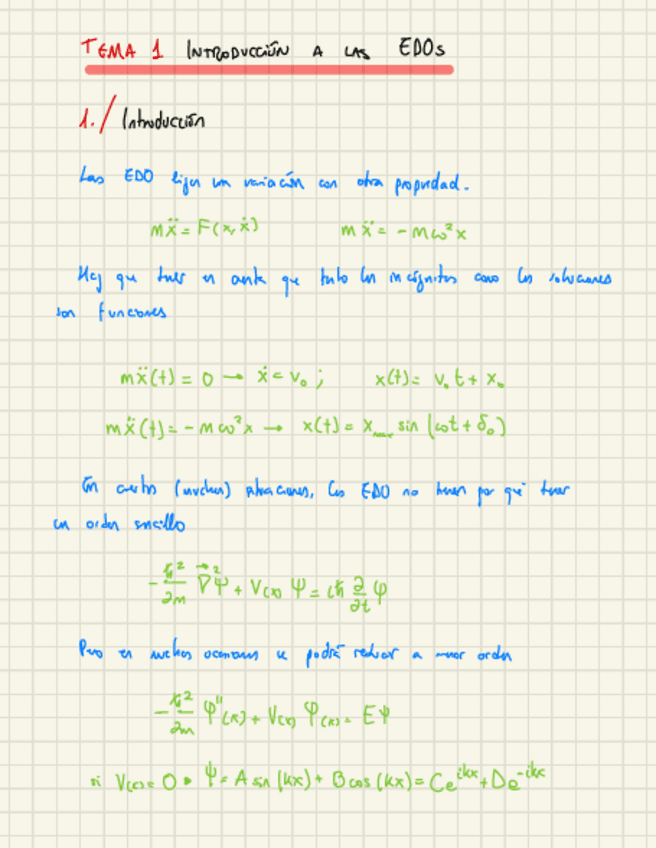 TEMA 1 INTRODUCCIÓN A LAS EDOs
1./ Introducción
Las EDO ligan una variación con otra propiedad.
mẍ = F(x, ẋ)   mẍ = -mω²x
Hay que tener en cuenta que tanto las incógnitas como las soluciones
son funciones
mẍ(t) = 0 → ẋ = v₀ ;   x(t) = v₀t + x₀
mẍ(t) = -mω²x → x(t) = x_max sin(ωt + δ₀)
En ciertas (muchas) situaciones, las EDO no tienen por qué tener
un orden sencillo
-ħ²/2m ∇⃗²Ψ + V(x) Ψ = iħ ∂/∂t Ψ
Pero en muchas ocasiones se podrá reducir a menor orden
-ħ²/2m Ψ''(x) + V(x) Ψ(x) = EΨ
si V(x) = 0 • Ψ = A sin(kx) + B cos(kx) = Ce^{ikx} + De^{-ikx}